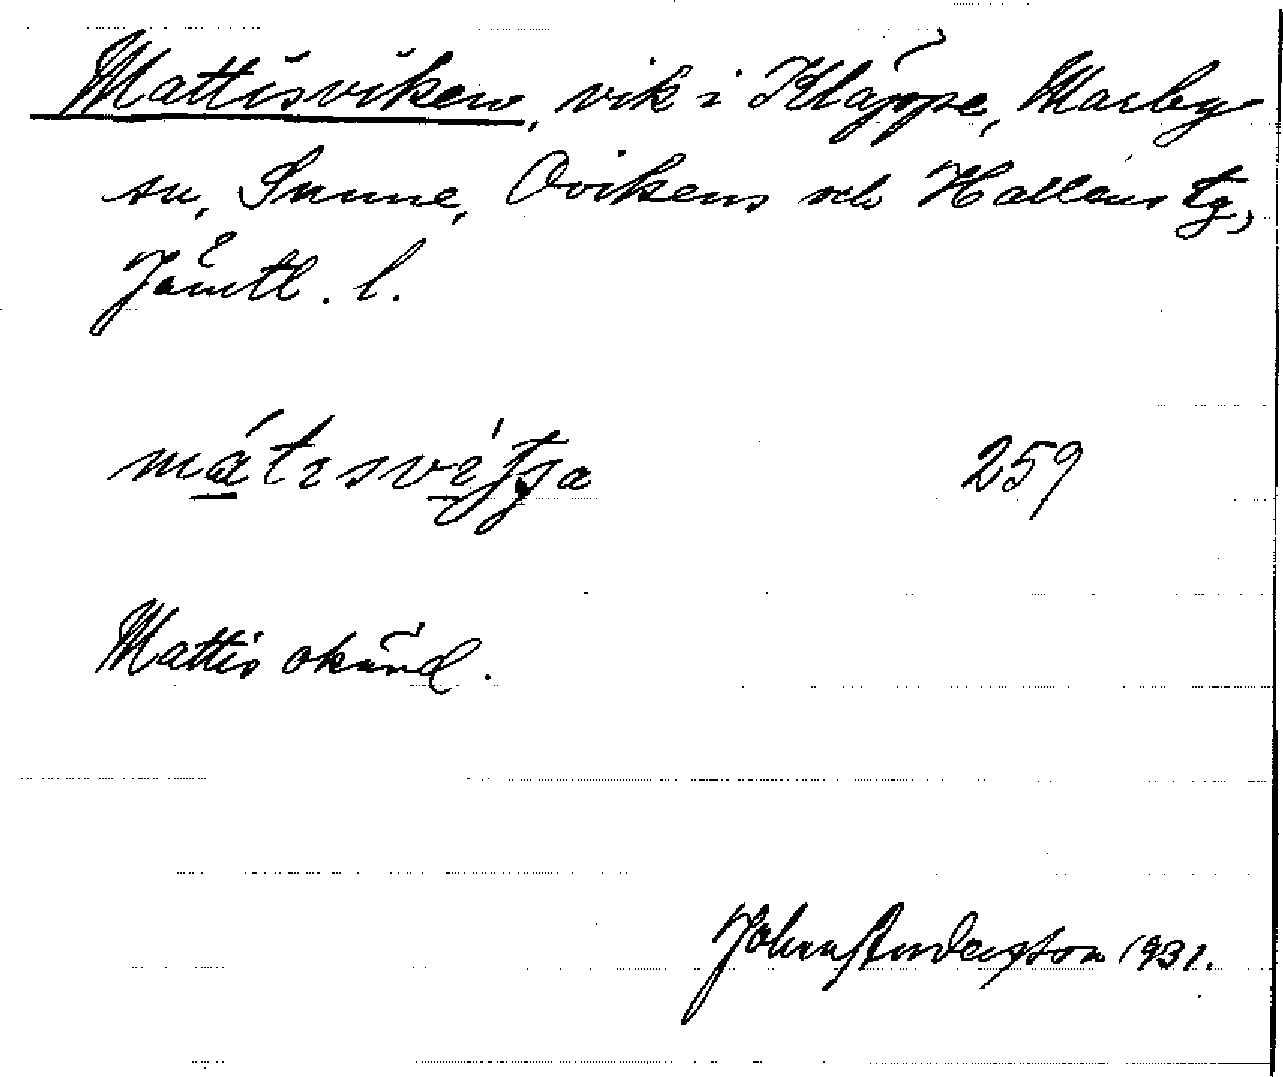 Mattisviken, vik i Kläppe, Marby
sn, Sunne, Ovikens och Hallens tg,
Jämtl. l.
259
Mattis okänd.
John Andersson 1931.